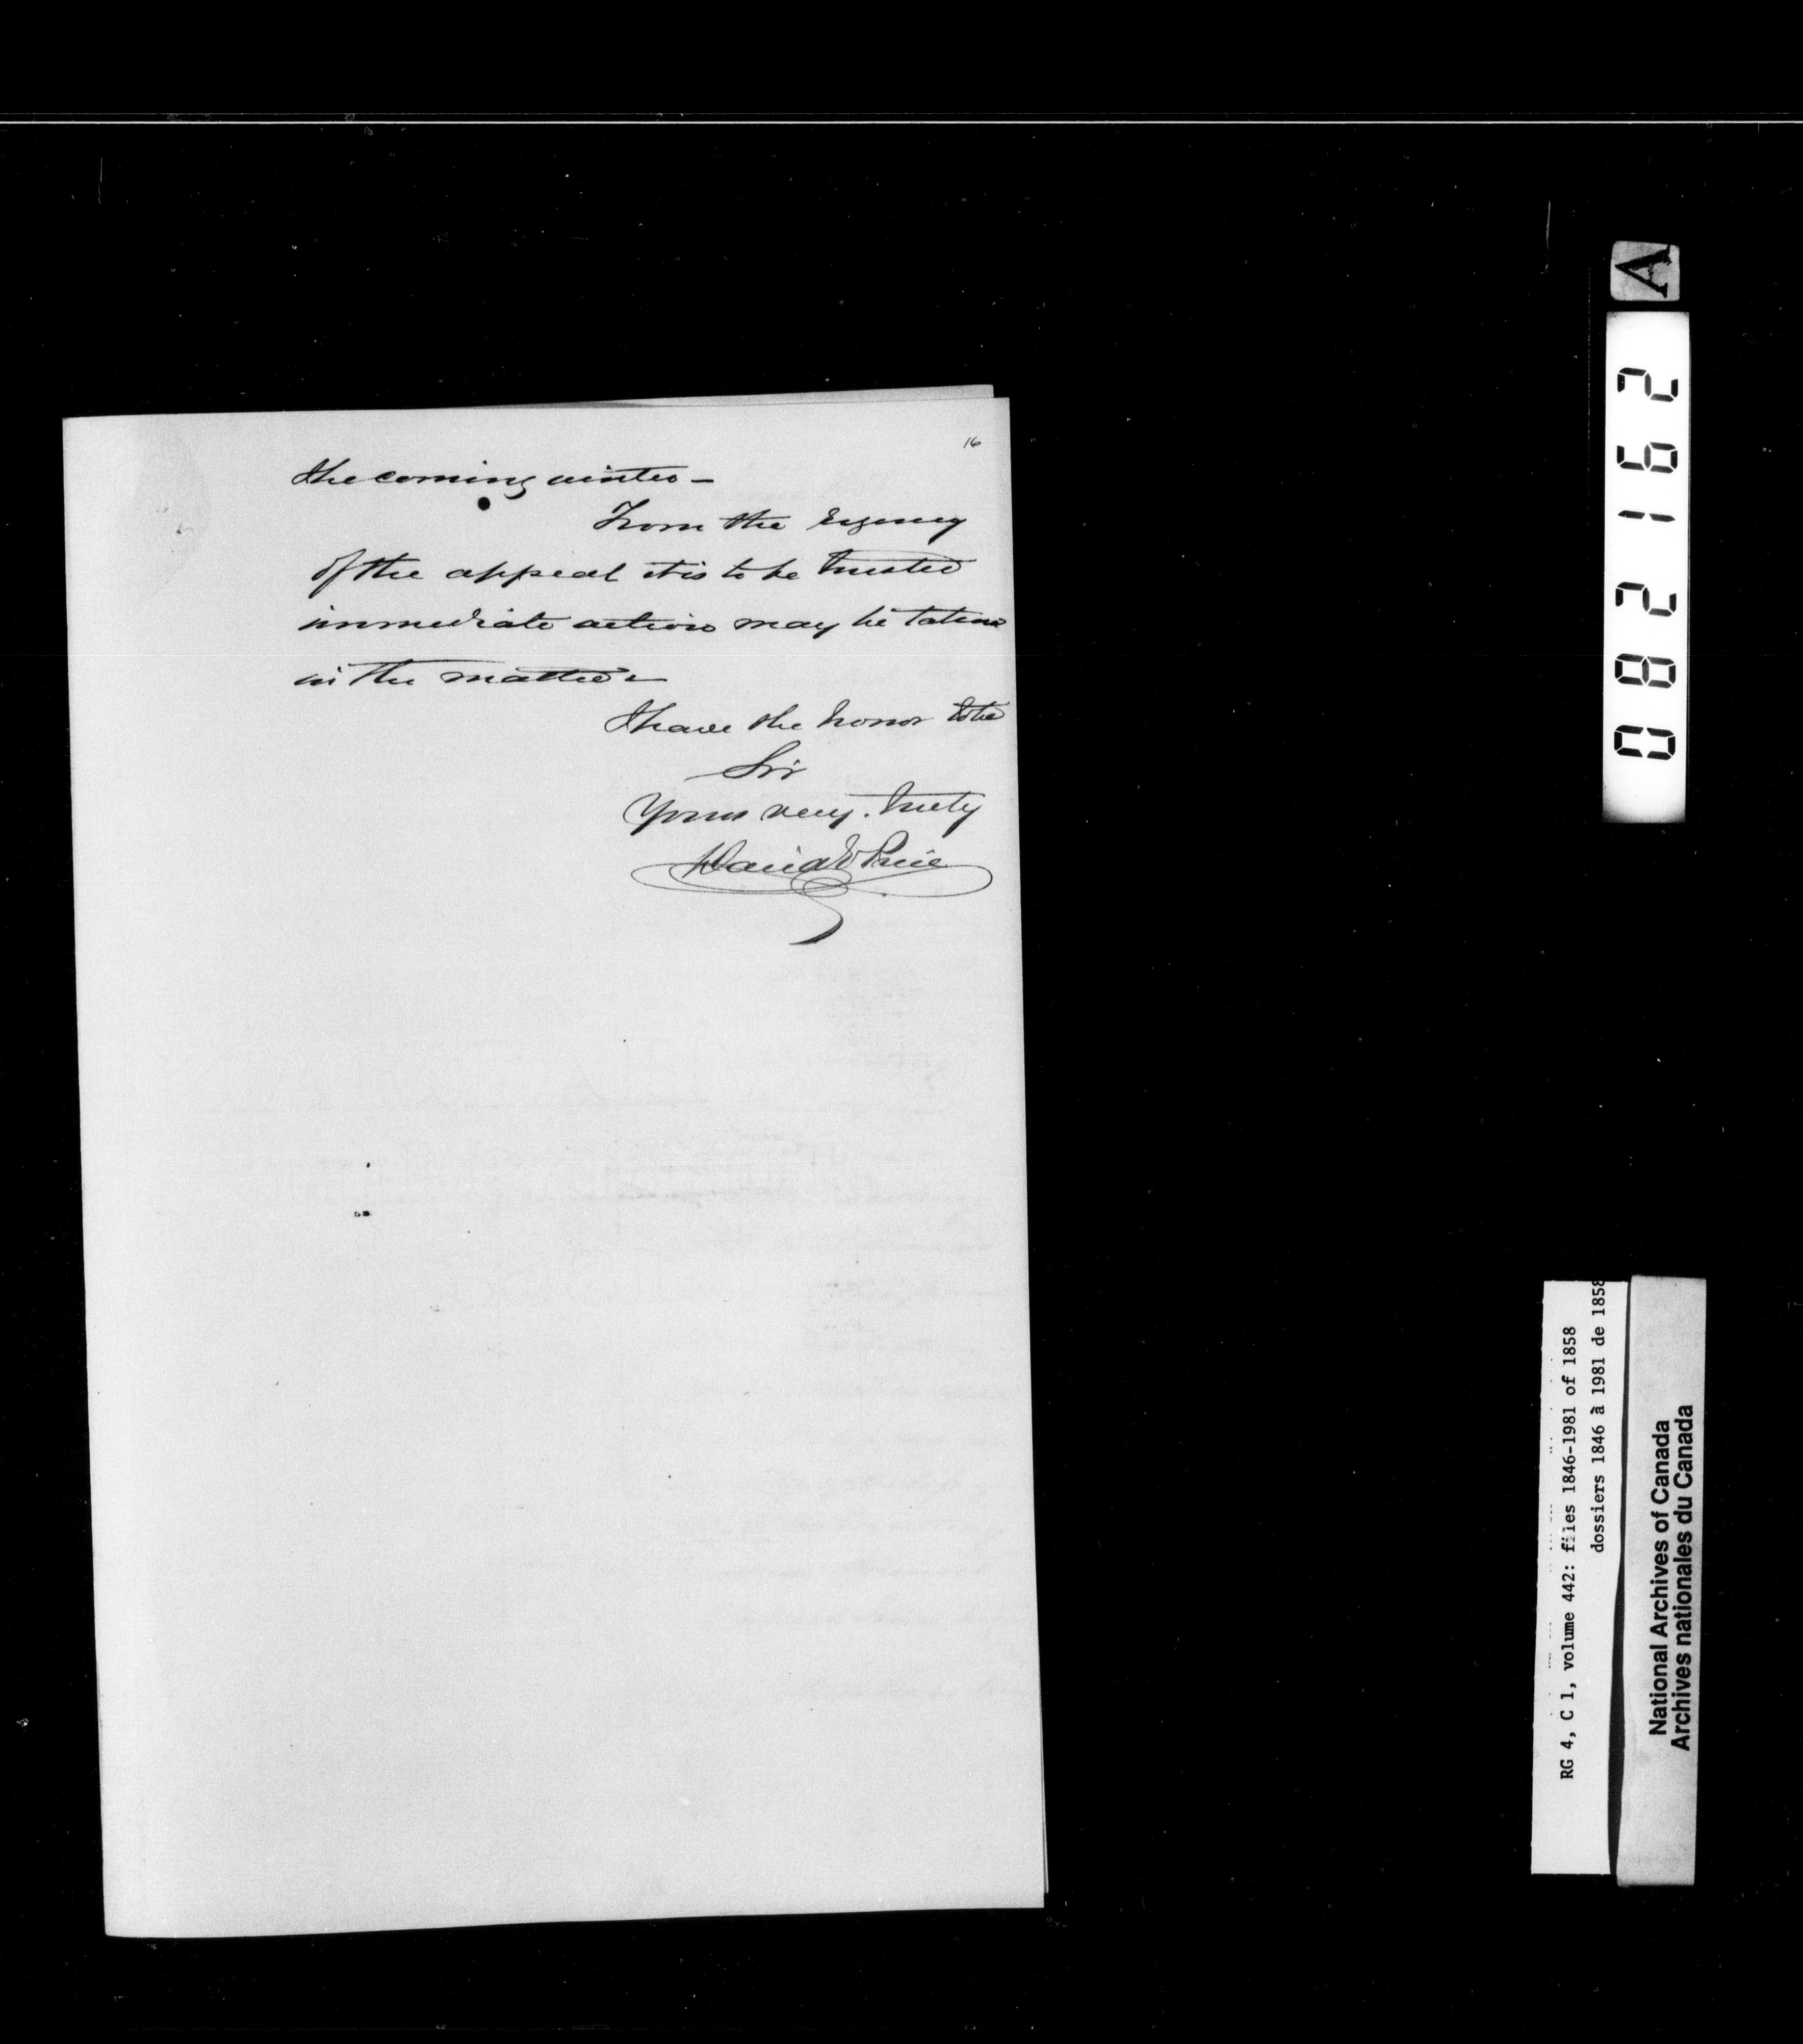 16
the coming winter –
From the urgency
of the appeal it is to be trusted
immediate action may be taken
in the matter –
I have the honor to be
Sir
Yours very truly
David E Price
A
082162
RG 4, C 1, volume 442: files 1846-1981 of 1858
dossiers 1846 à 1981 de 1858
National Archives of Canada
Archives nationales du Canada